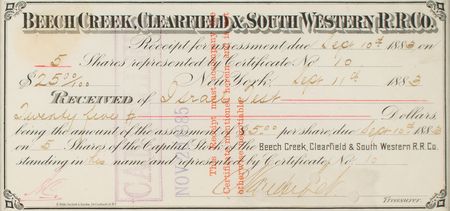 BEECH CREEK, CLEARFIELD & SOUTH WESTERN R.R.CO.
Receipt for assessment due Sep 10th 1883 on
5 Shares represented by Certificate No. 10
$25 00/100 New York, Sept 11th 1883
RECEIVED of Israel
Twenty five Dollars,
being the amount of the assessment of $5.00 per share, due Sep 10th 1883
on 5 Shares of the Capital Stock of the Beech Creek, Clearfield & South Western R.R. Co.
standing in his name and represented by Certificate No. 10
Treasurer.
This Receipt must accompany the
Certificate mentioned herein and is not
negotiable
NOV 1885